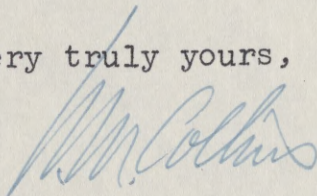 ery truly yours,
Collins